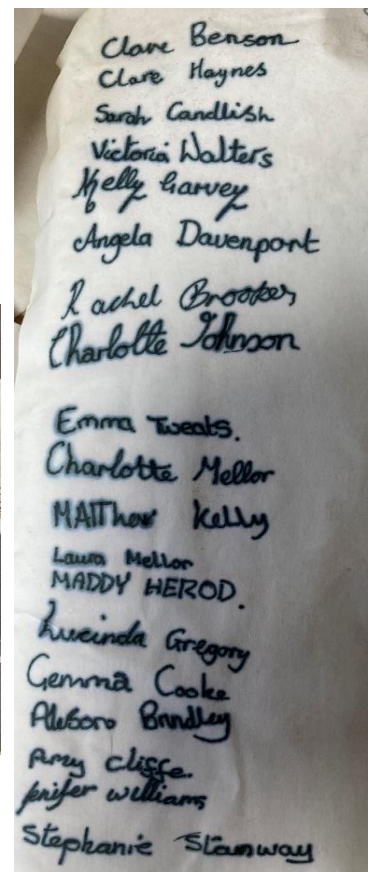 Clare Benson
Clare Haynes
Sarah Candlish
Victoria Walters
Kelly Garvey
Angela Davenport
Rachel Brookes
Charlotte Johnson
Emma Tweats.
Charlotte Mellor
MATThew Kelly
Laura Mellor
MADDY HEROD.
Lucinda Gregory
Gemma Cooke
Bradley
Amy Cliffe.
williams
Stephanie Stanway